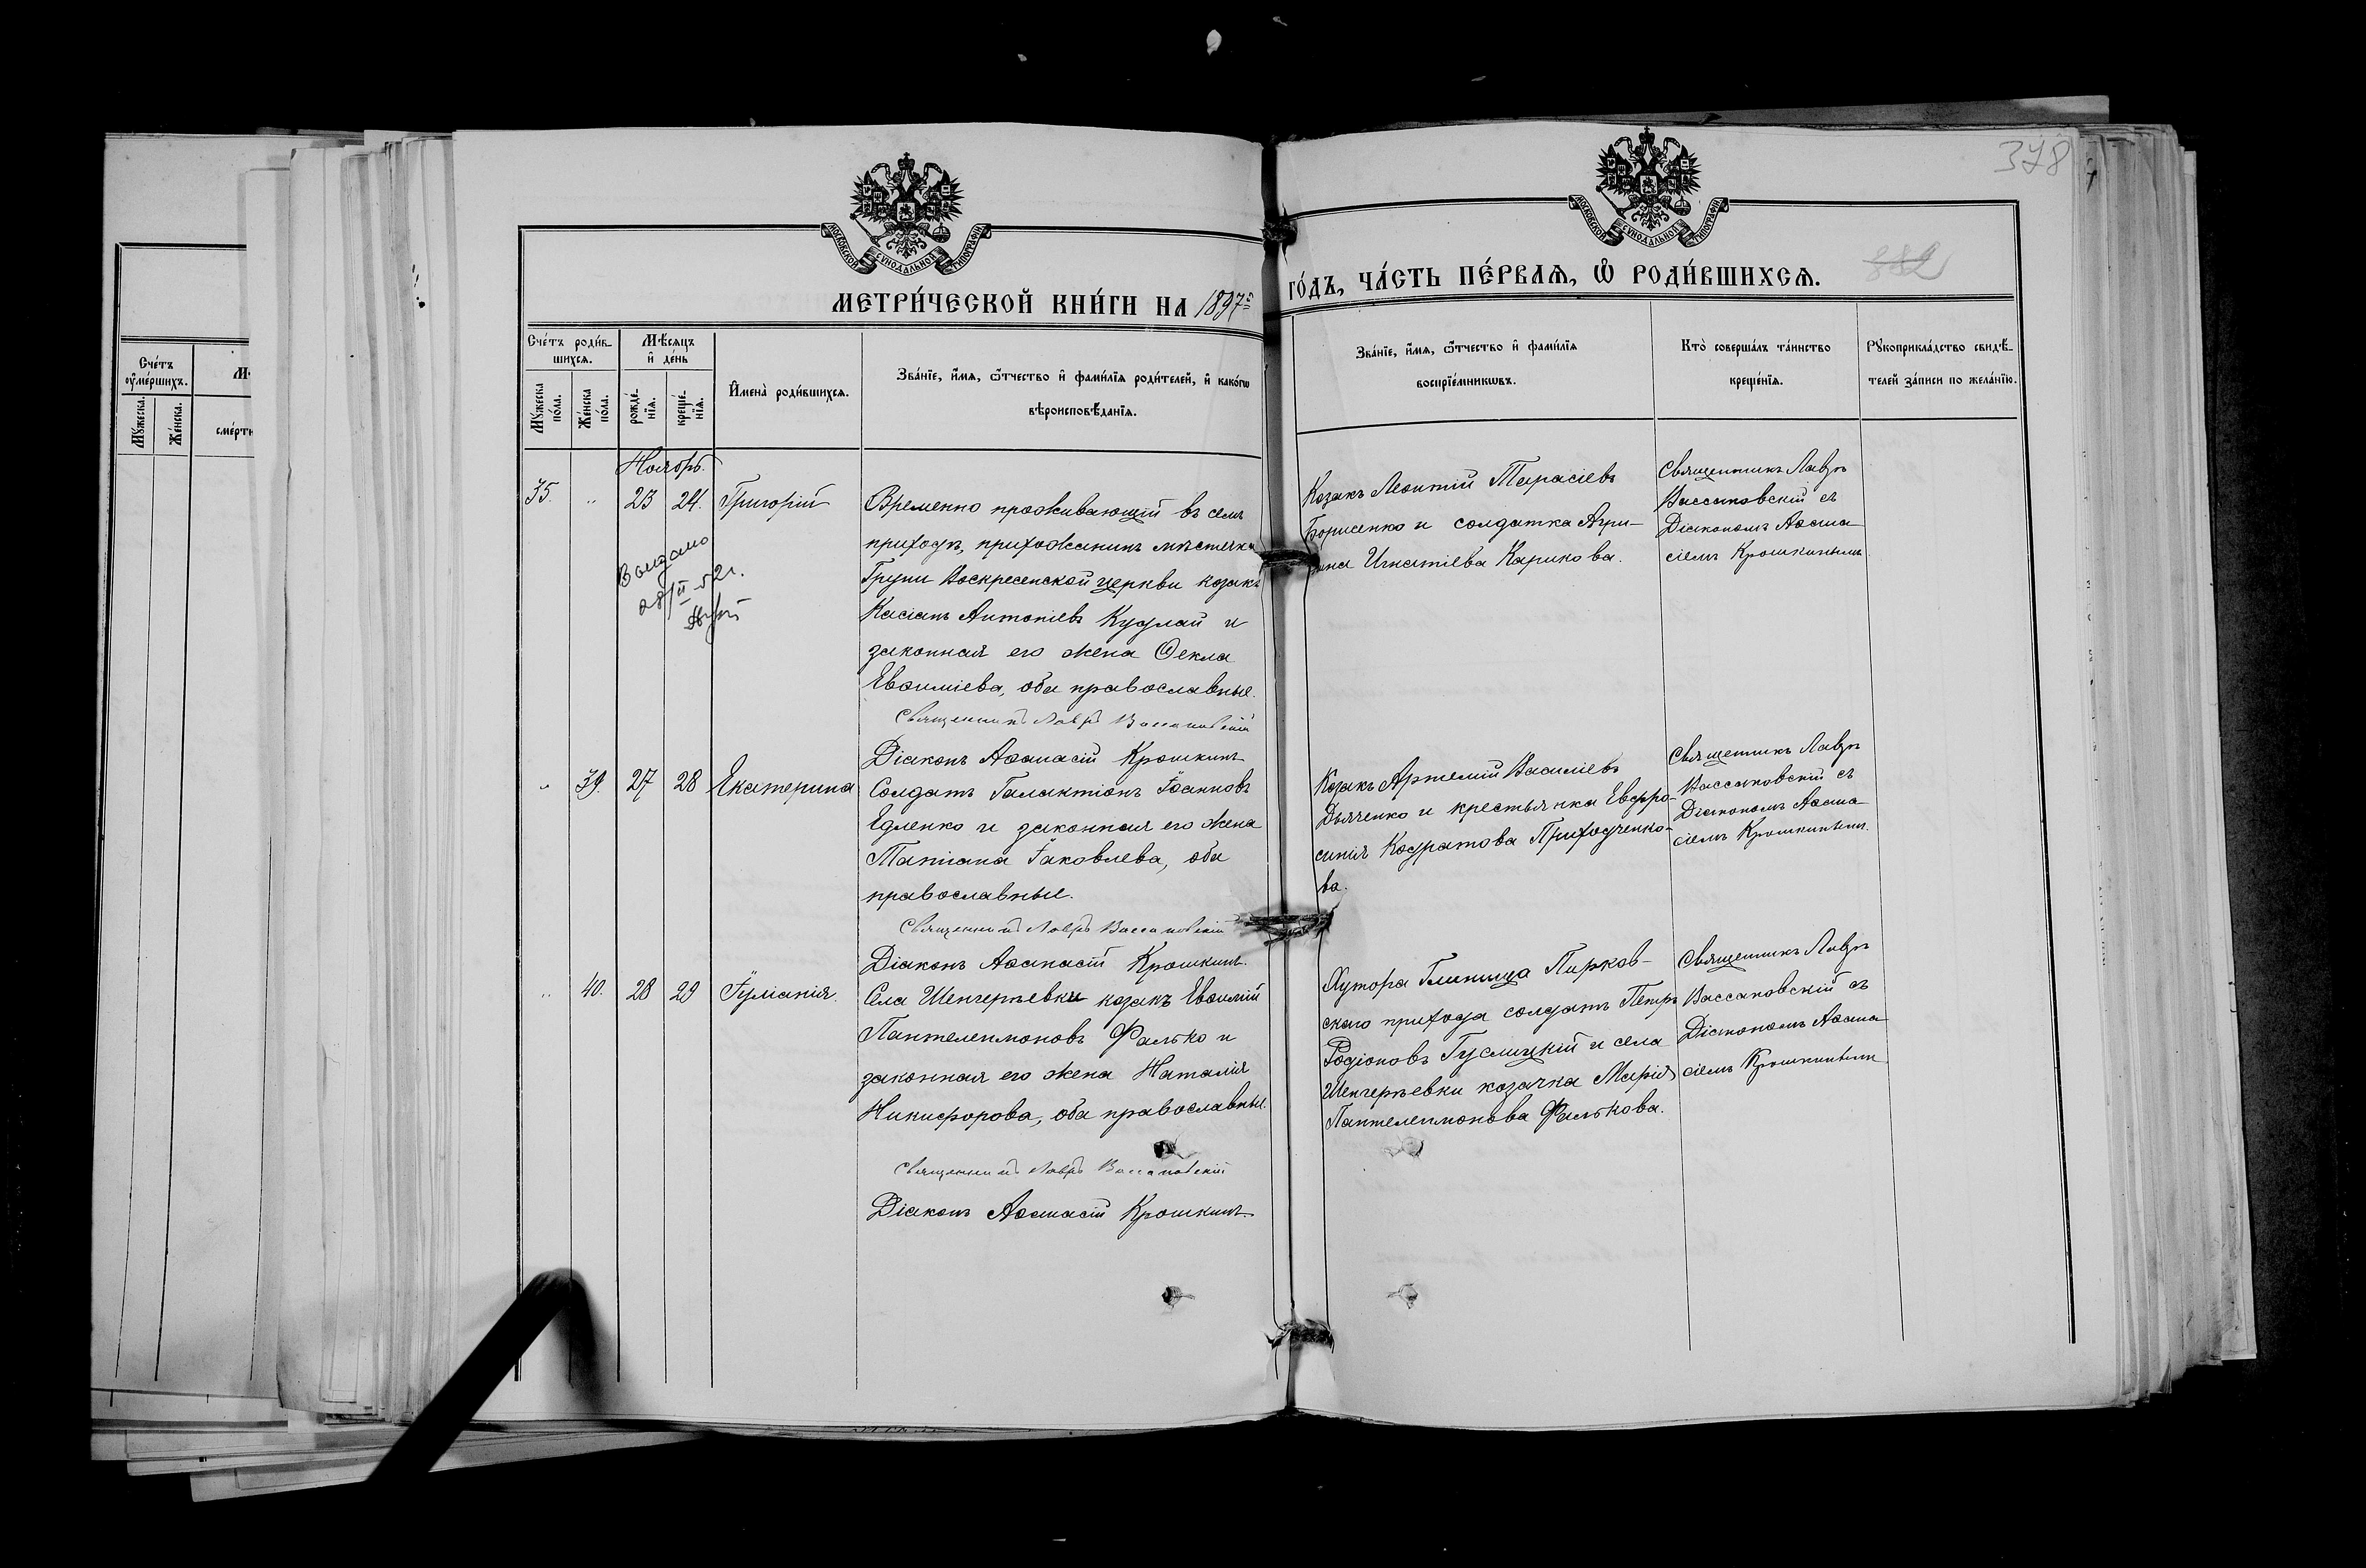 378
МОСКОВСКОЙ СѴНОДАЛЬНОЙ ТИПОГРАФІИ
МОСКОВСКОЙ СѴНОДАЛЬНОЙ ТИПОГРАФІИ
882
МЕТРИ́ЧЕСКОЙ КНИ́ГИ НА 1897й ГО́ДЪ, ЧА́СТЬ ПЕ́РВАѦ, Ѽ РОДИ́ВШИХСѦ.
Сче́тъ оу҆ме́ршихъ.
Мꙋ́жеска.
Же́нска.
сме́рти
Сче́тъ роди́в-
шихсѧ.
Мꙋ́жеска по́ла.
Же́нска по́ла.
Мѣ́сѧцъ
и҆ де́нь
рожде́-
нїѧ.
креще́-
нїѧ.
И҆мена̀ роди́вшихсѧ.
Зва́нїе, и҆́мѧ, ѻ҆́тчество и҆ фами́лїѧ роди́телей, и҆ како́гѡ
вѣроисповѣ́данїѧ.
Зва́нїе, и҆́мѧ, ѻ҆́тчество и҆ фами́лїѧ
воспрїе́мникѡвъ.
Кто̀ соверша́лъ та́инство
креще́нїѧ.
Рꙋкоприкла́дство свидѣ́-
телей за́писи по жела́нїю.
Ноябрь.
35. „ 23 24. Григорій
Выдано
28/II-52г.
Временно проживающій въ семъ
приходѣ, прихожанинъ мѣстечка
Груни Воскресенской церкви козакъ
Касіанъ Антоніевъ Кудлай и
законная его жена Ѳекла
Евѳиміева, оба православные.
Священникъ Лавръ Вассаковскій
Діаконъ Аѳанасій Крошкинъ
Козакъ Леонтій Тарасіевъ
Борисенко и солдатка Агри-
пина Игнатіева Карикова.
Священникъ Лавръ
Вассаковскій съ
Діакономъ Аѳана
сіемъ Крошкинымъ
„ 39. 27 28 Екатерина
Солдатъ Галактіонъ Іоанновъ
Едленко и законная его жена
Татіана Іаковлева, оба
православные.
Священникъ Лавръ Вассаковскій
Діаконъ Аѳанасій Крошкинъ.
Козакъ Артемій Василіевъ
Дьяченко и крестьянка Евфро-
синія Кодратова Приходченко-
ва.
Священникъ Лавръ
Вассаковскій съ
Діакономъ Аѳана
сіемъ Крошкинымъ.
„ 40. 28 29 Іуліанія.
Села Шенгерѣевки козакъ Евѳимій
Пантелеимоновъ Фалько и
законная его жена Наталія
Никифорова, оба православные.
Священникъ Лавръ Вассаковскій
Діаконъ Аѳанасій Крошкинъ.
Хутора Глинища Пирков-
скаго прихода солдатъ Петръ
Родіоновъ Гуслицкій и села
Шенгерѣевки козачка Марія
Пантелеимонова Фалькова.
Священникъ Лавръ
Вассаковскій съ
Діакономъ Аѳана
сіемъ Крошкинымъ